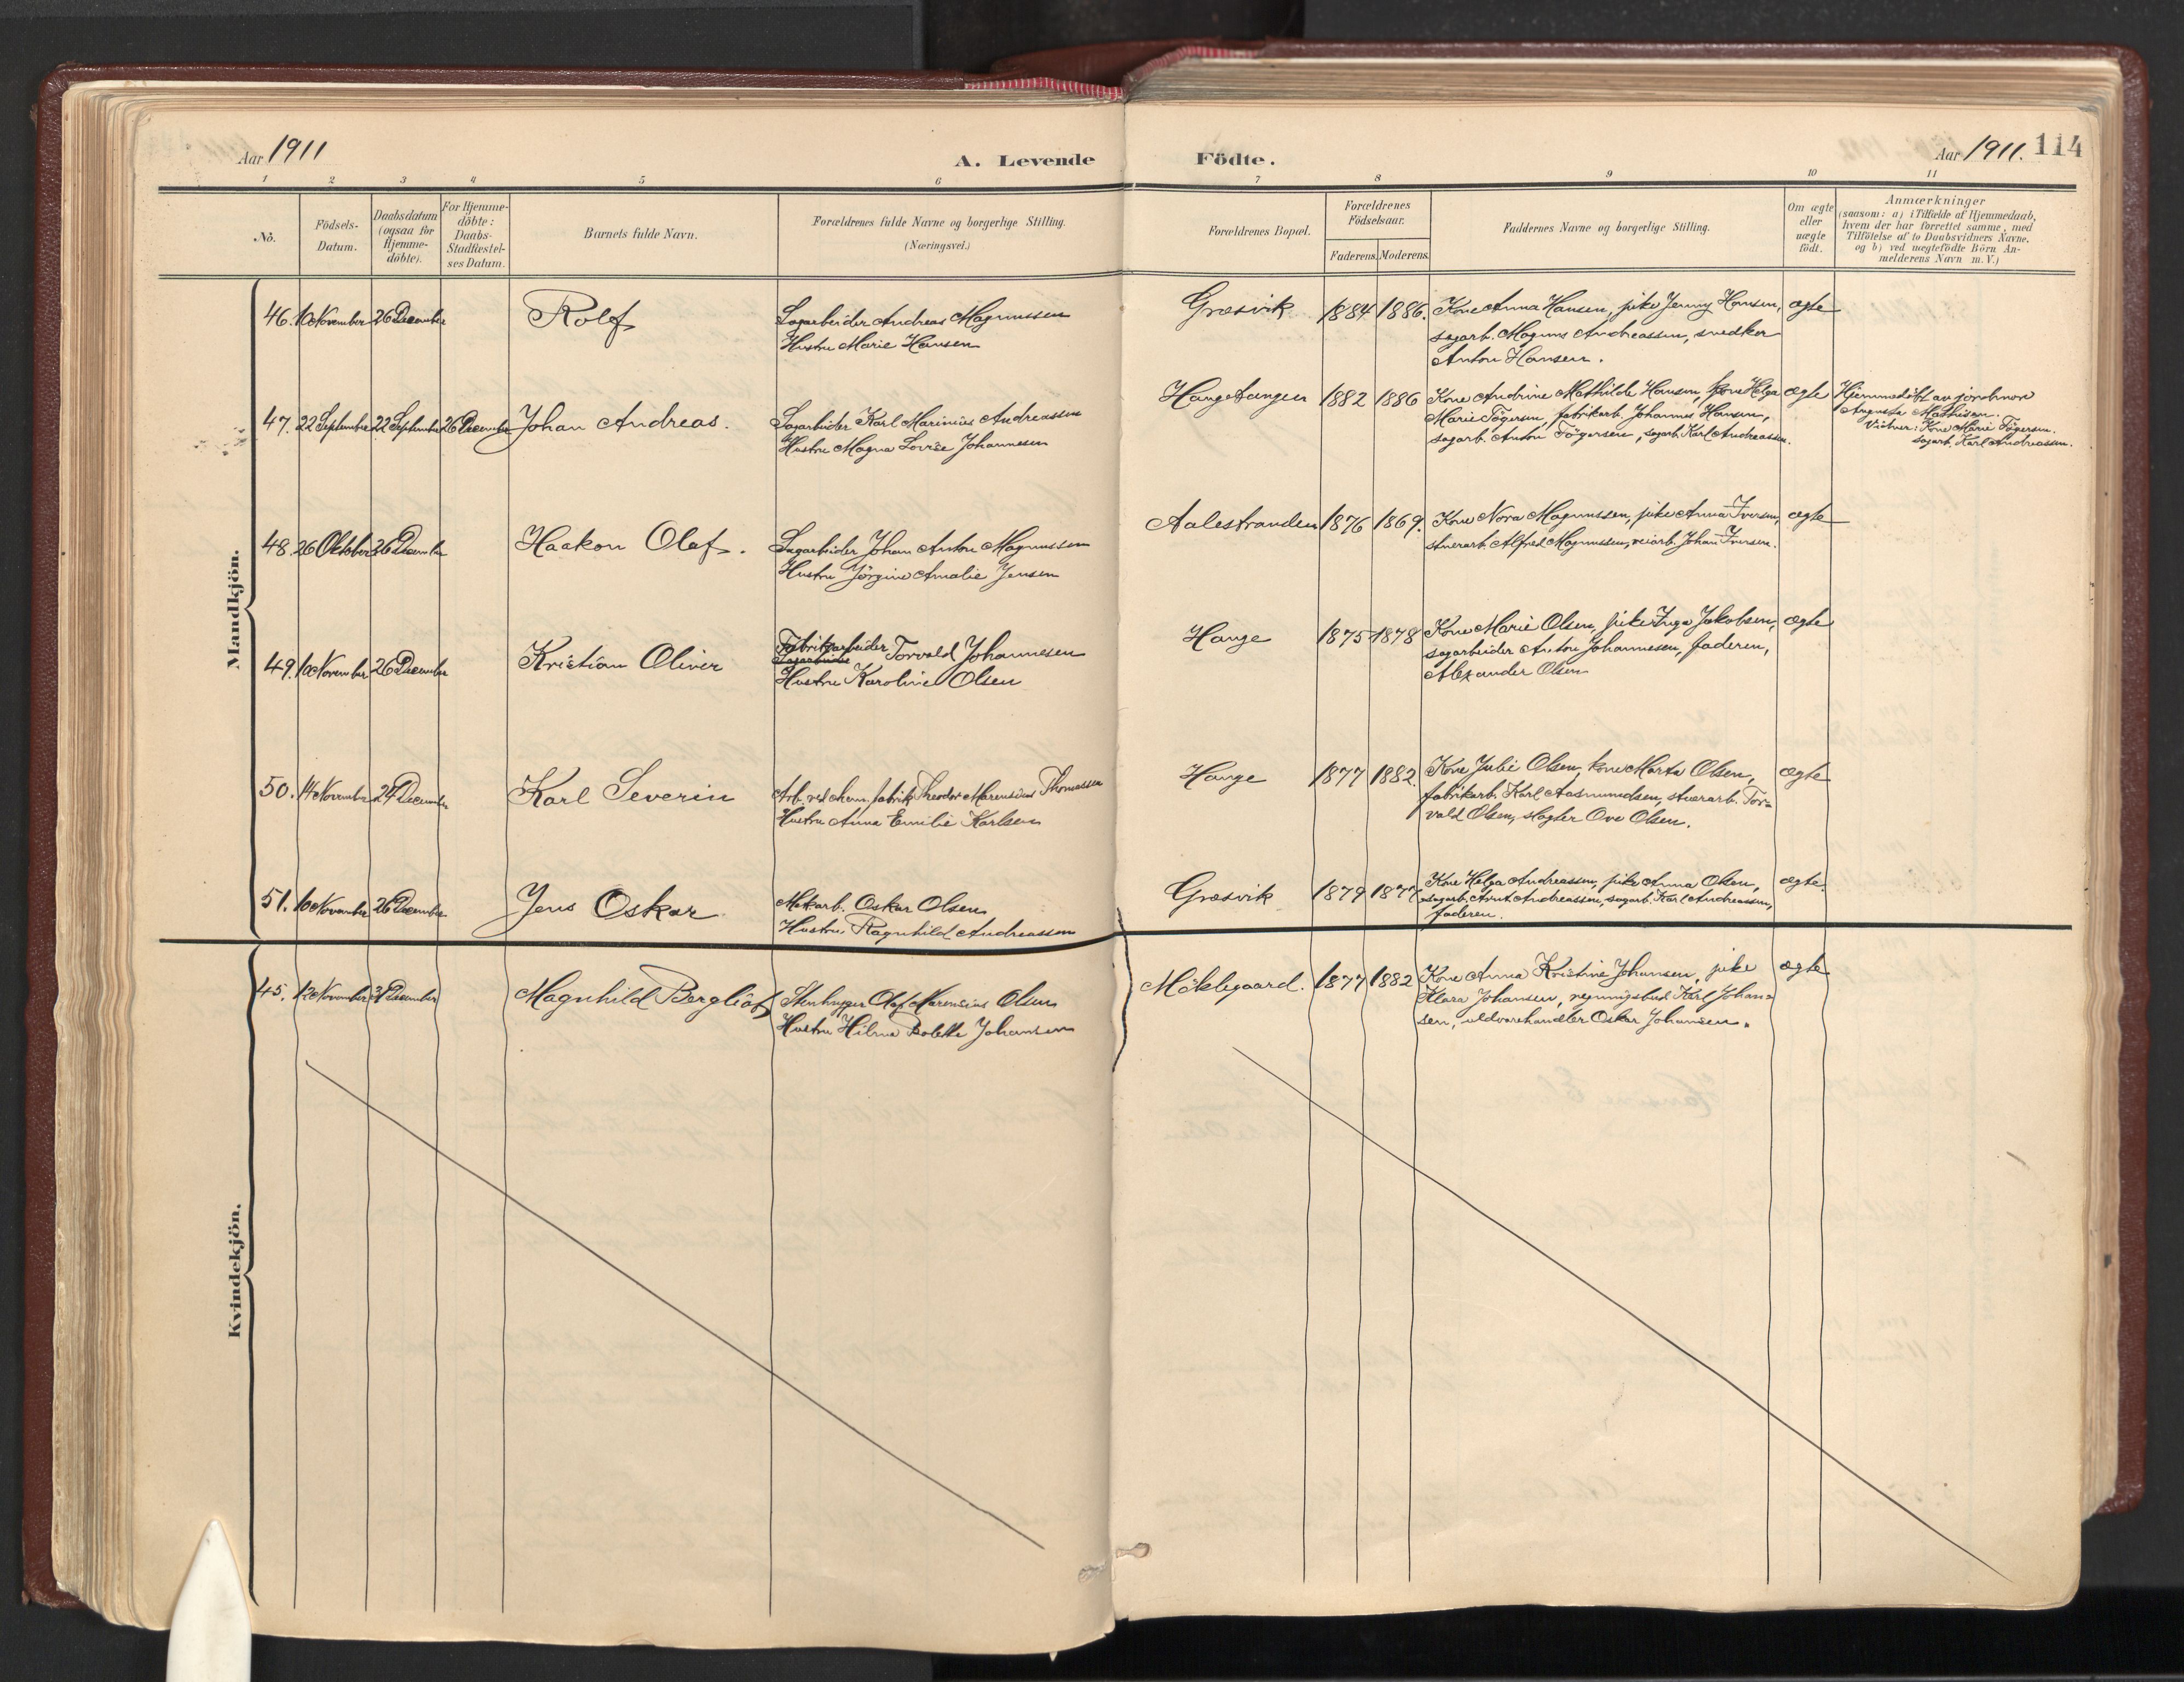 Aar 1911
A. Levende
Födte.
Aar 1911. 114
1 2 3 4 5 6 7 8 9 10 11
No.
Födsels-
Datum.
Daabsdatum
(ogsaa for
Hjemme-
döbte).
For Hjemme-
döbte:
Daabs-
Stadfæstel-
ses Datum.
Barnets fulde Navn.
Forældrenes fulde Navne og borgerlige Stilling.
(Næringsvei.)
Forældrenes Bopæl.
Forældrenes
Födselsaar.
Faderens. Moderens.
Faddernes Navne og borgerlige Stilling.
Om ægte
eller
uægte
födt.
Anmærkninger
(saasom: a) i Tilfælde af Hjemmedaab,
hvem der har forrettet samme, med
Tilföielse af to Daabsvidners Navne.
og b) ved uægtefödte Börn An-
melderens Navn m. V.)
Mandkjön.
46. 10 November 26 December Rolf
Sagarbeider Andreas Magnussen
Hustru Marie Hansen
Græsvik 1884 1886.
Kone Anna Hansen, pike Jenny Hansen,
sagarb. Magnus Andreassen, snedker
Anton Hansen.
ægte
47. 22 September 22 September 26 December Johan Andreas.
Sagarbeider Karl Marinius Andreassen
Hustru Magna Lovise Johannesen
Hangetangen 1882 1886
Kone Andrine Mathilde Hansen, kone Helga
Marie Tögersen, fabrikarb. Johannes Hansen,
sagarb. Anton Tögersen, sagarb. Karl Andreassen.
ægte
Hjemmedöbt av jordmor
Augusta Mathisen.
Vidner: Kone Marie Tögersen.
sagarb. Karl Andreassen.
48. 26 Oktober 26 December Haakon Olaf.
Sagarbeider Johan Anton Magnussen
Hustru Jörgine Amalie Jensen
Aalestranden 1876 1869.
Kone Nora Magnussen, pike Anna Iversen,
stuerarb. Alfred Magnussen, veiarb. Johan Iversen.
ægte
49. 10 November 26 December Kristian Oliver
Fabrikarbeider Torvald Johannesen
Sagarbeider
Hustru Karoline Olsen
Hange 1875 1878
Kone Marie Olsen, pike Inga Jakobsen,
sagarbeider Anton Johannesen, faderen,
Alexander Olsen
ægte
50. 14 November 24 December Karl Severin
Arb. ved chem. fabrik Theodor Marensius Thomassen
Hustru Anna Emilie Karlsen
Hange 1877 1882.
Kone Julie Olsen, kone Marta Olsen,
fabrikarb. Karl Aasmundsen, stuerarb. Tor-
vald Olsen, slagter Ove Olsen.
ægte
51. 10 November 26 December Jens Oskar
Mekarb. Oskar Olsen
Hustru Ragnhild Andreassen
Græsvik 1879 1877
Kone Helga Andreassen, pike Anna Olsen,
sagarb. Arnt Andreassen, sagarb. Karl Andreassen,
faderen.
ægte.
Kvindekjön.
45. 12 November 31 December Magnhild Bergliot
Stenhugger Olaf Marensius Olsen
Hustru Hilma Bolette Johansen
Möklegaard. 1877 1882
Kone Anna Kristine Johansen, pike
Klara Johansen, regningsbud Karl Johan-
sen, uldvarehandler Oskar Johansen.
ægte